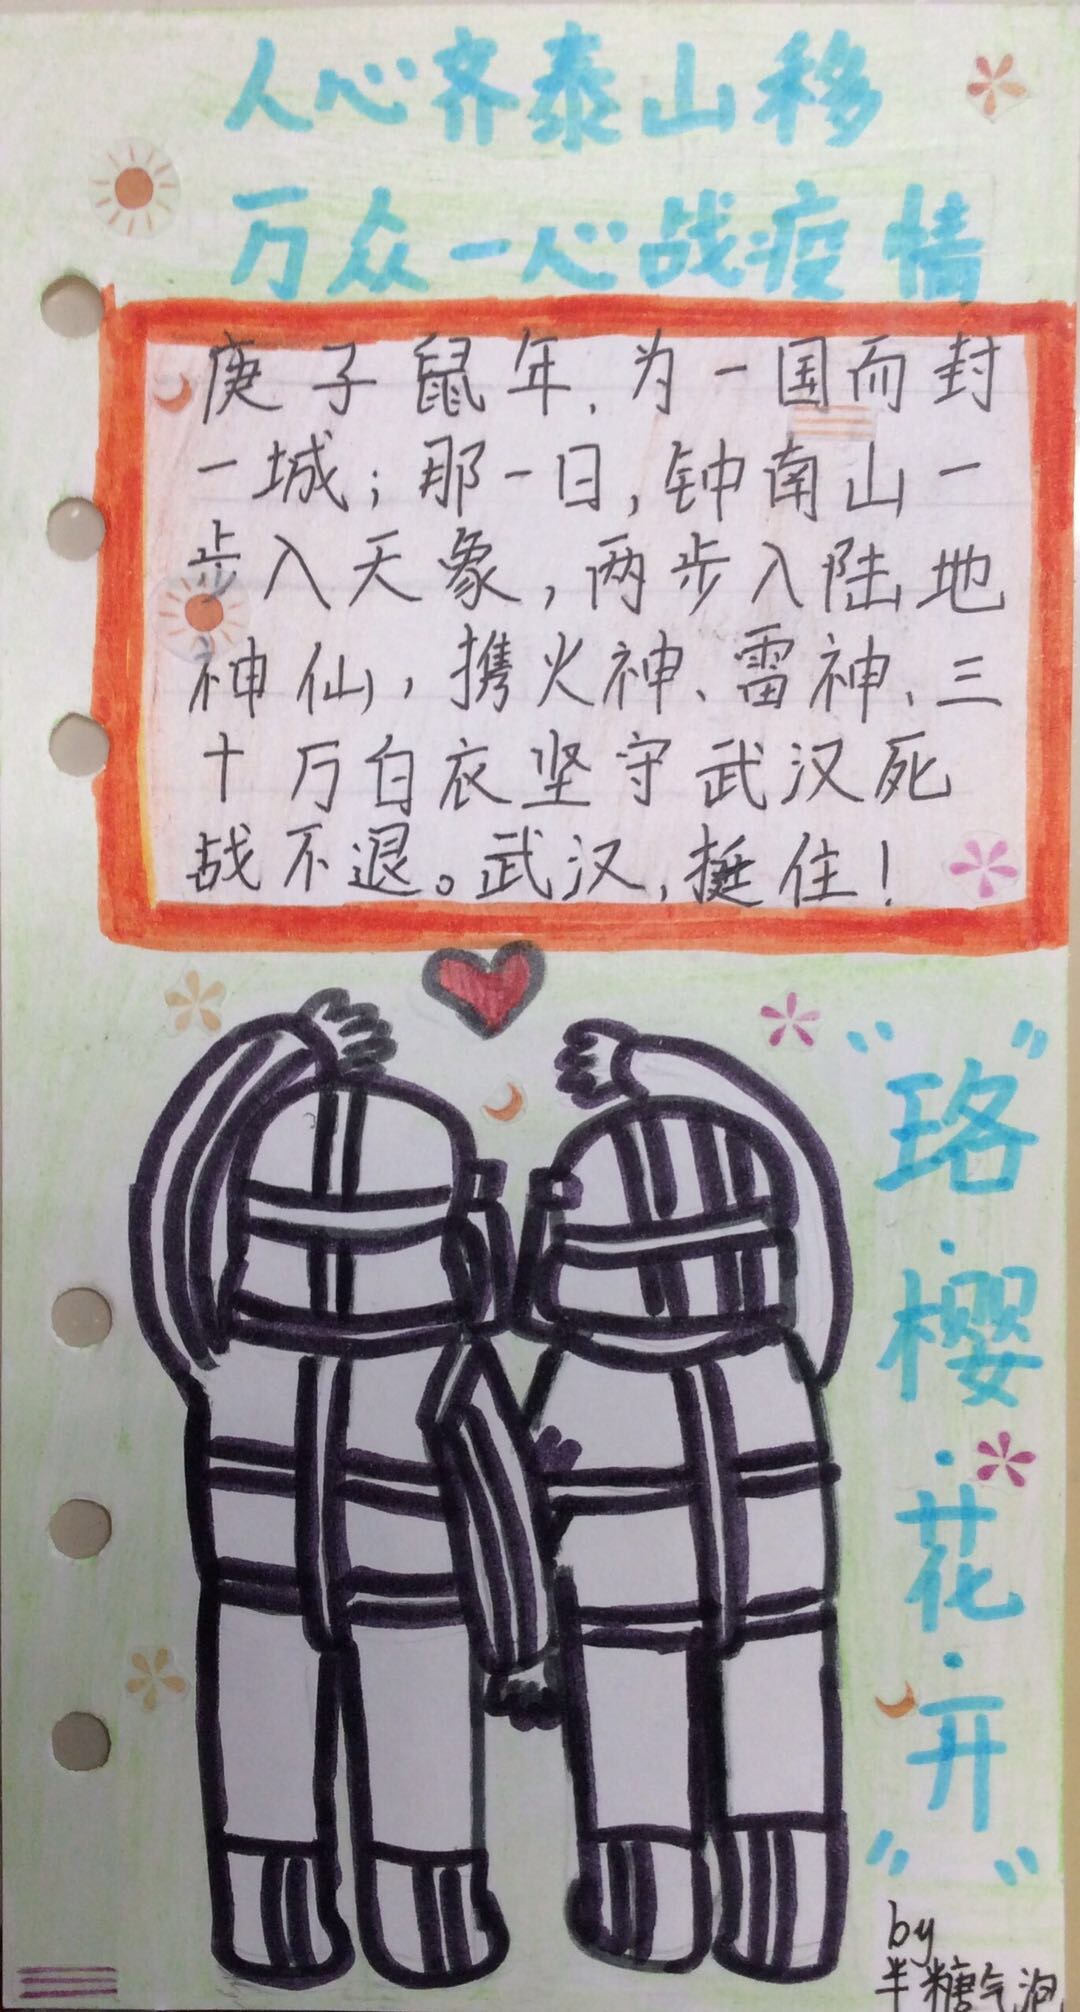 人心齐泰山移
万众一心战疫情
庚子鼠年,为一国而封
一城;那一日,钟南山一
步入天象,两步入陆地
神仙,携火神、雷神、三
十万白衣坚守武汉死
战不退。武汉,挺住!
“珞·樱·花·开”
by
半糖气泡